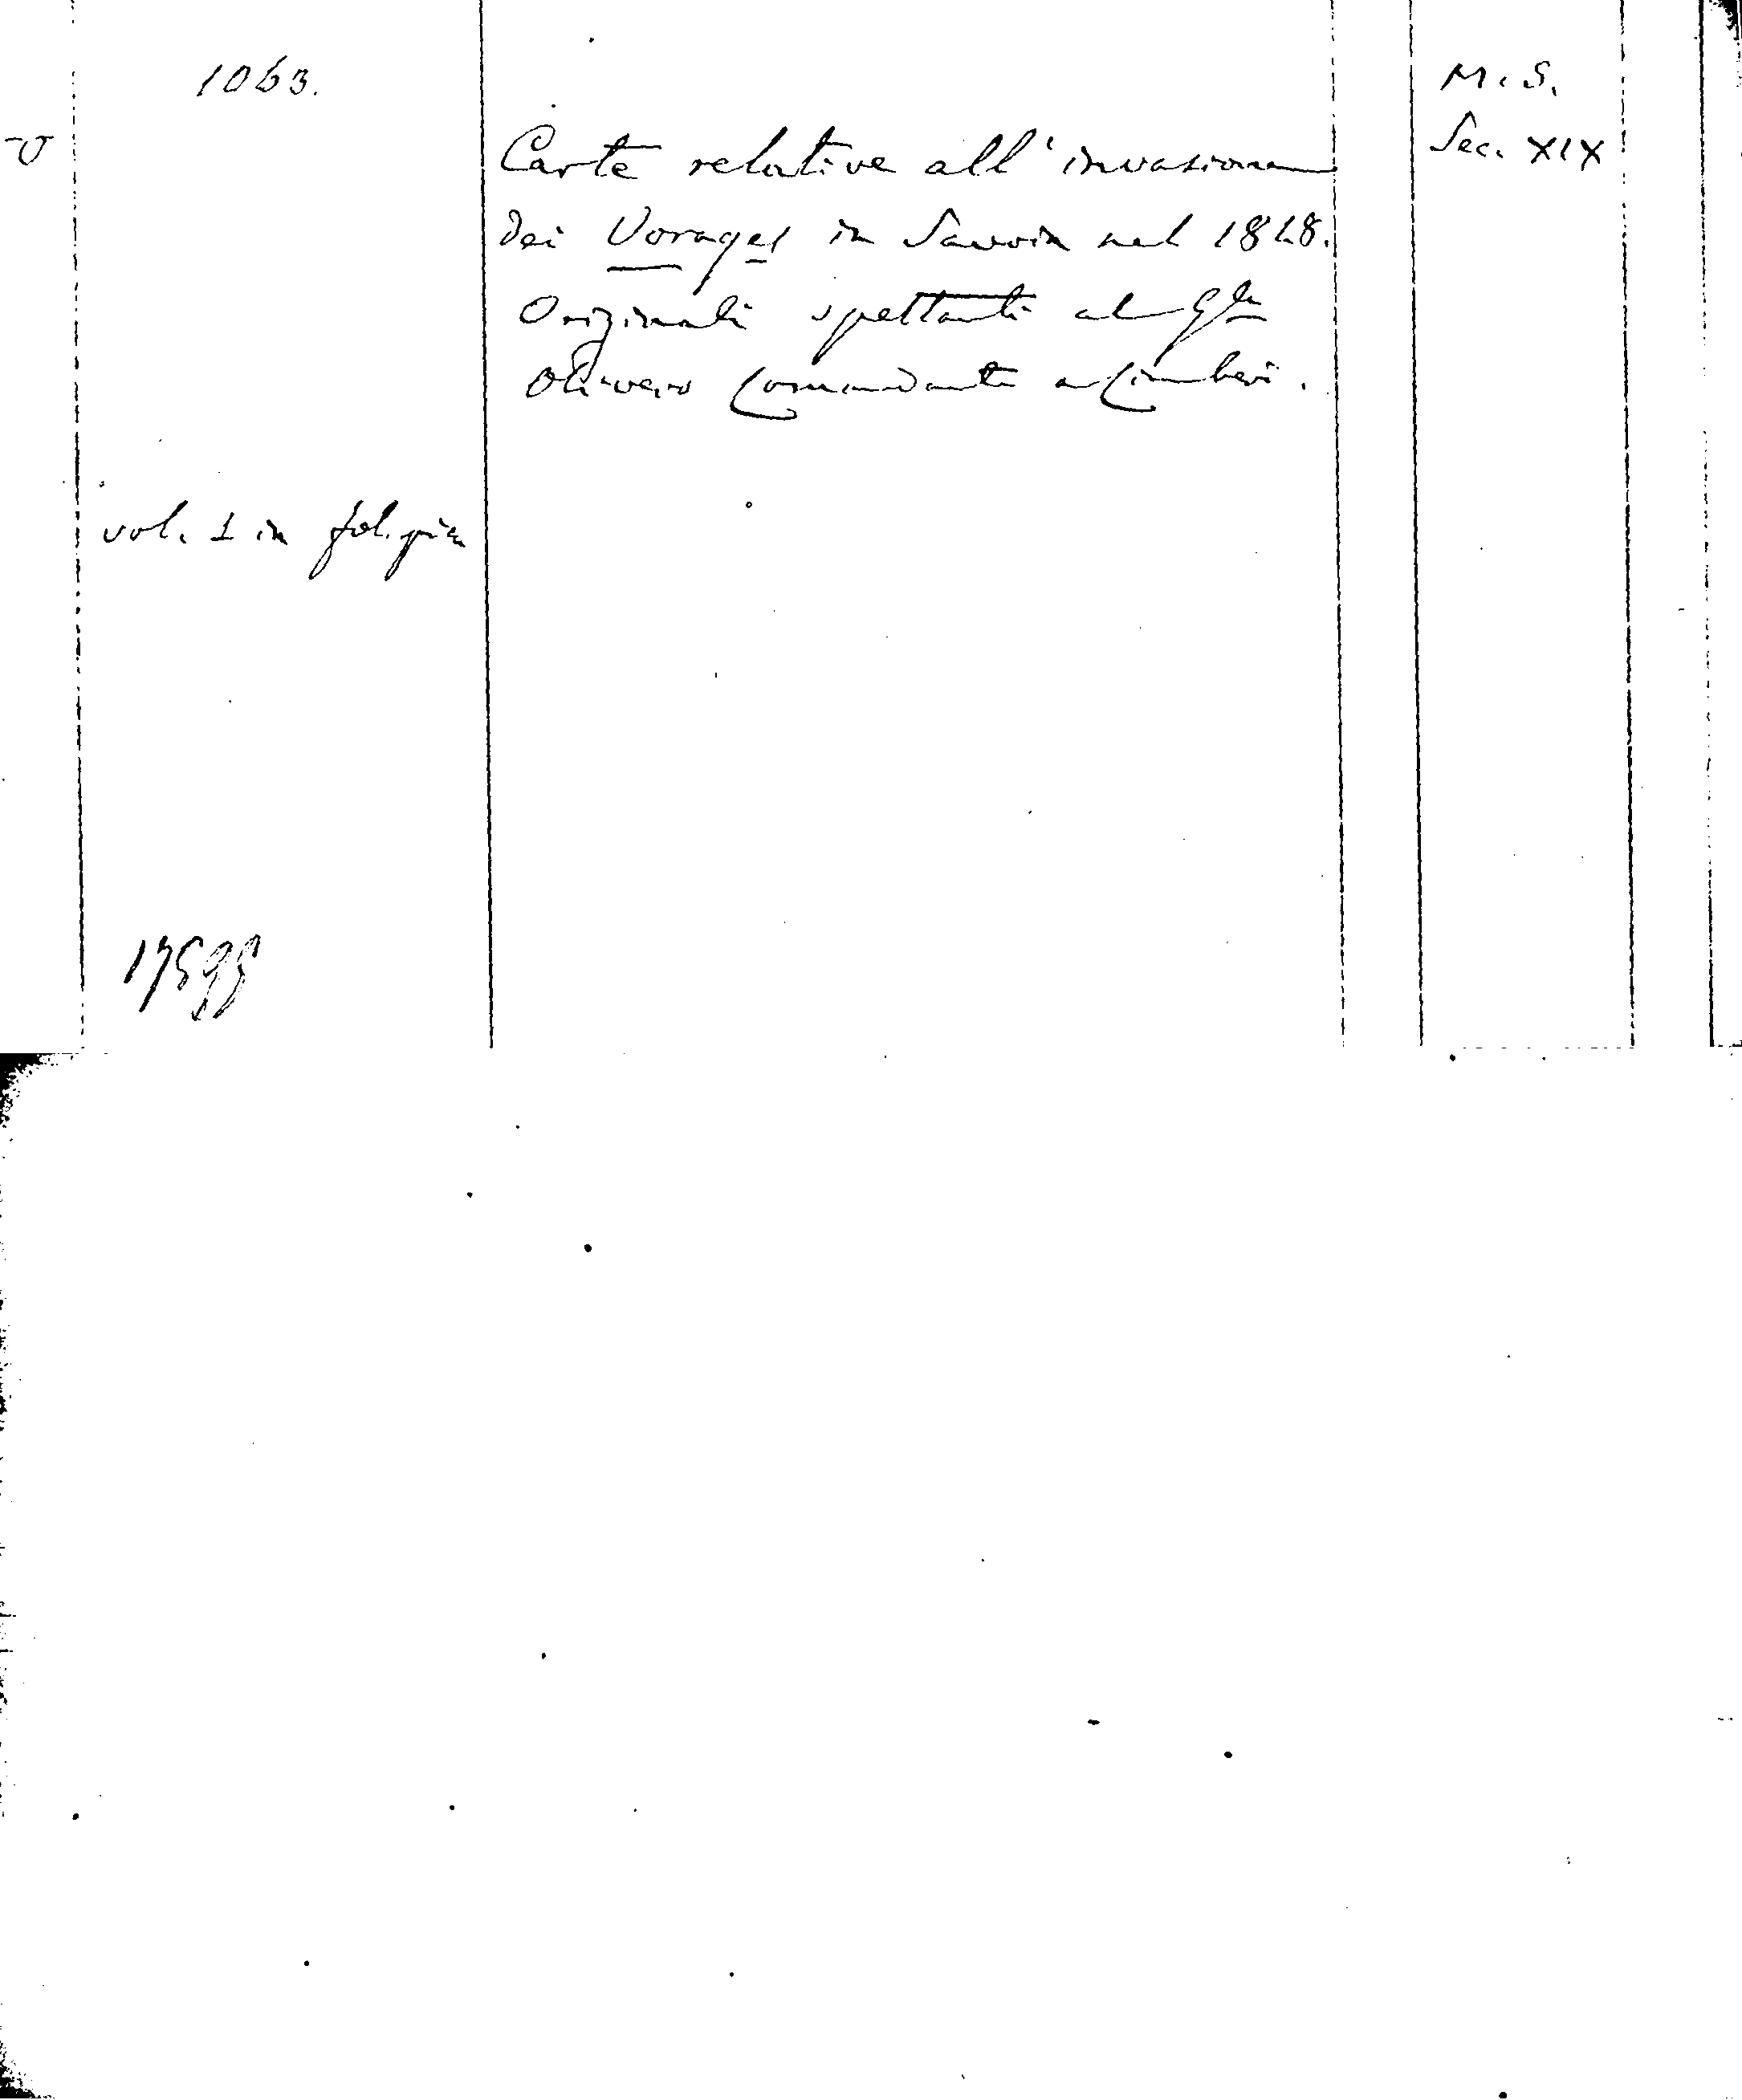 1063.
M. S.
Sec. XIX
Carte relative all'invasione
dei Vorages in Savoia nel 1848.
Originali spettanti al Gle
Olivero Comandante a Ciamberi.
vol. 1 in fol. pic.
17595